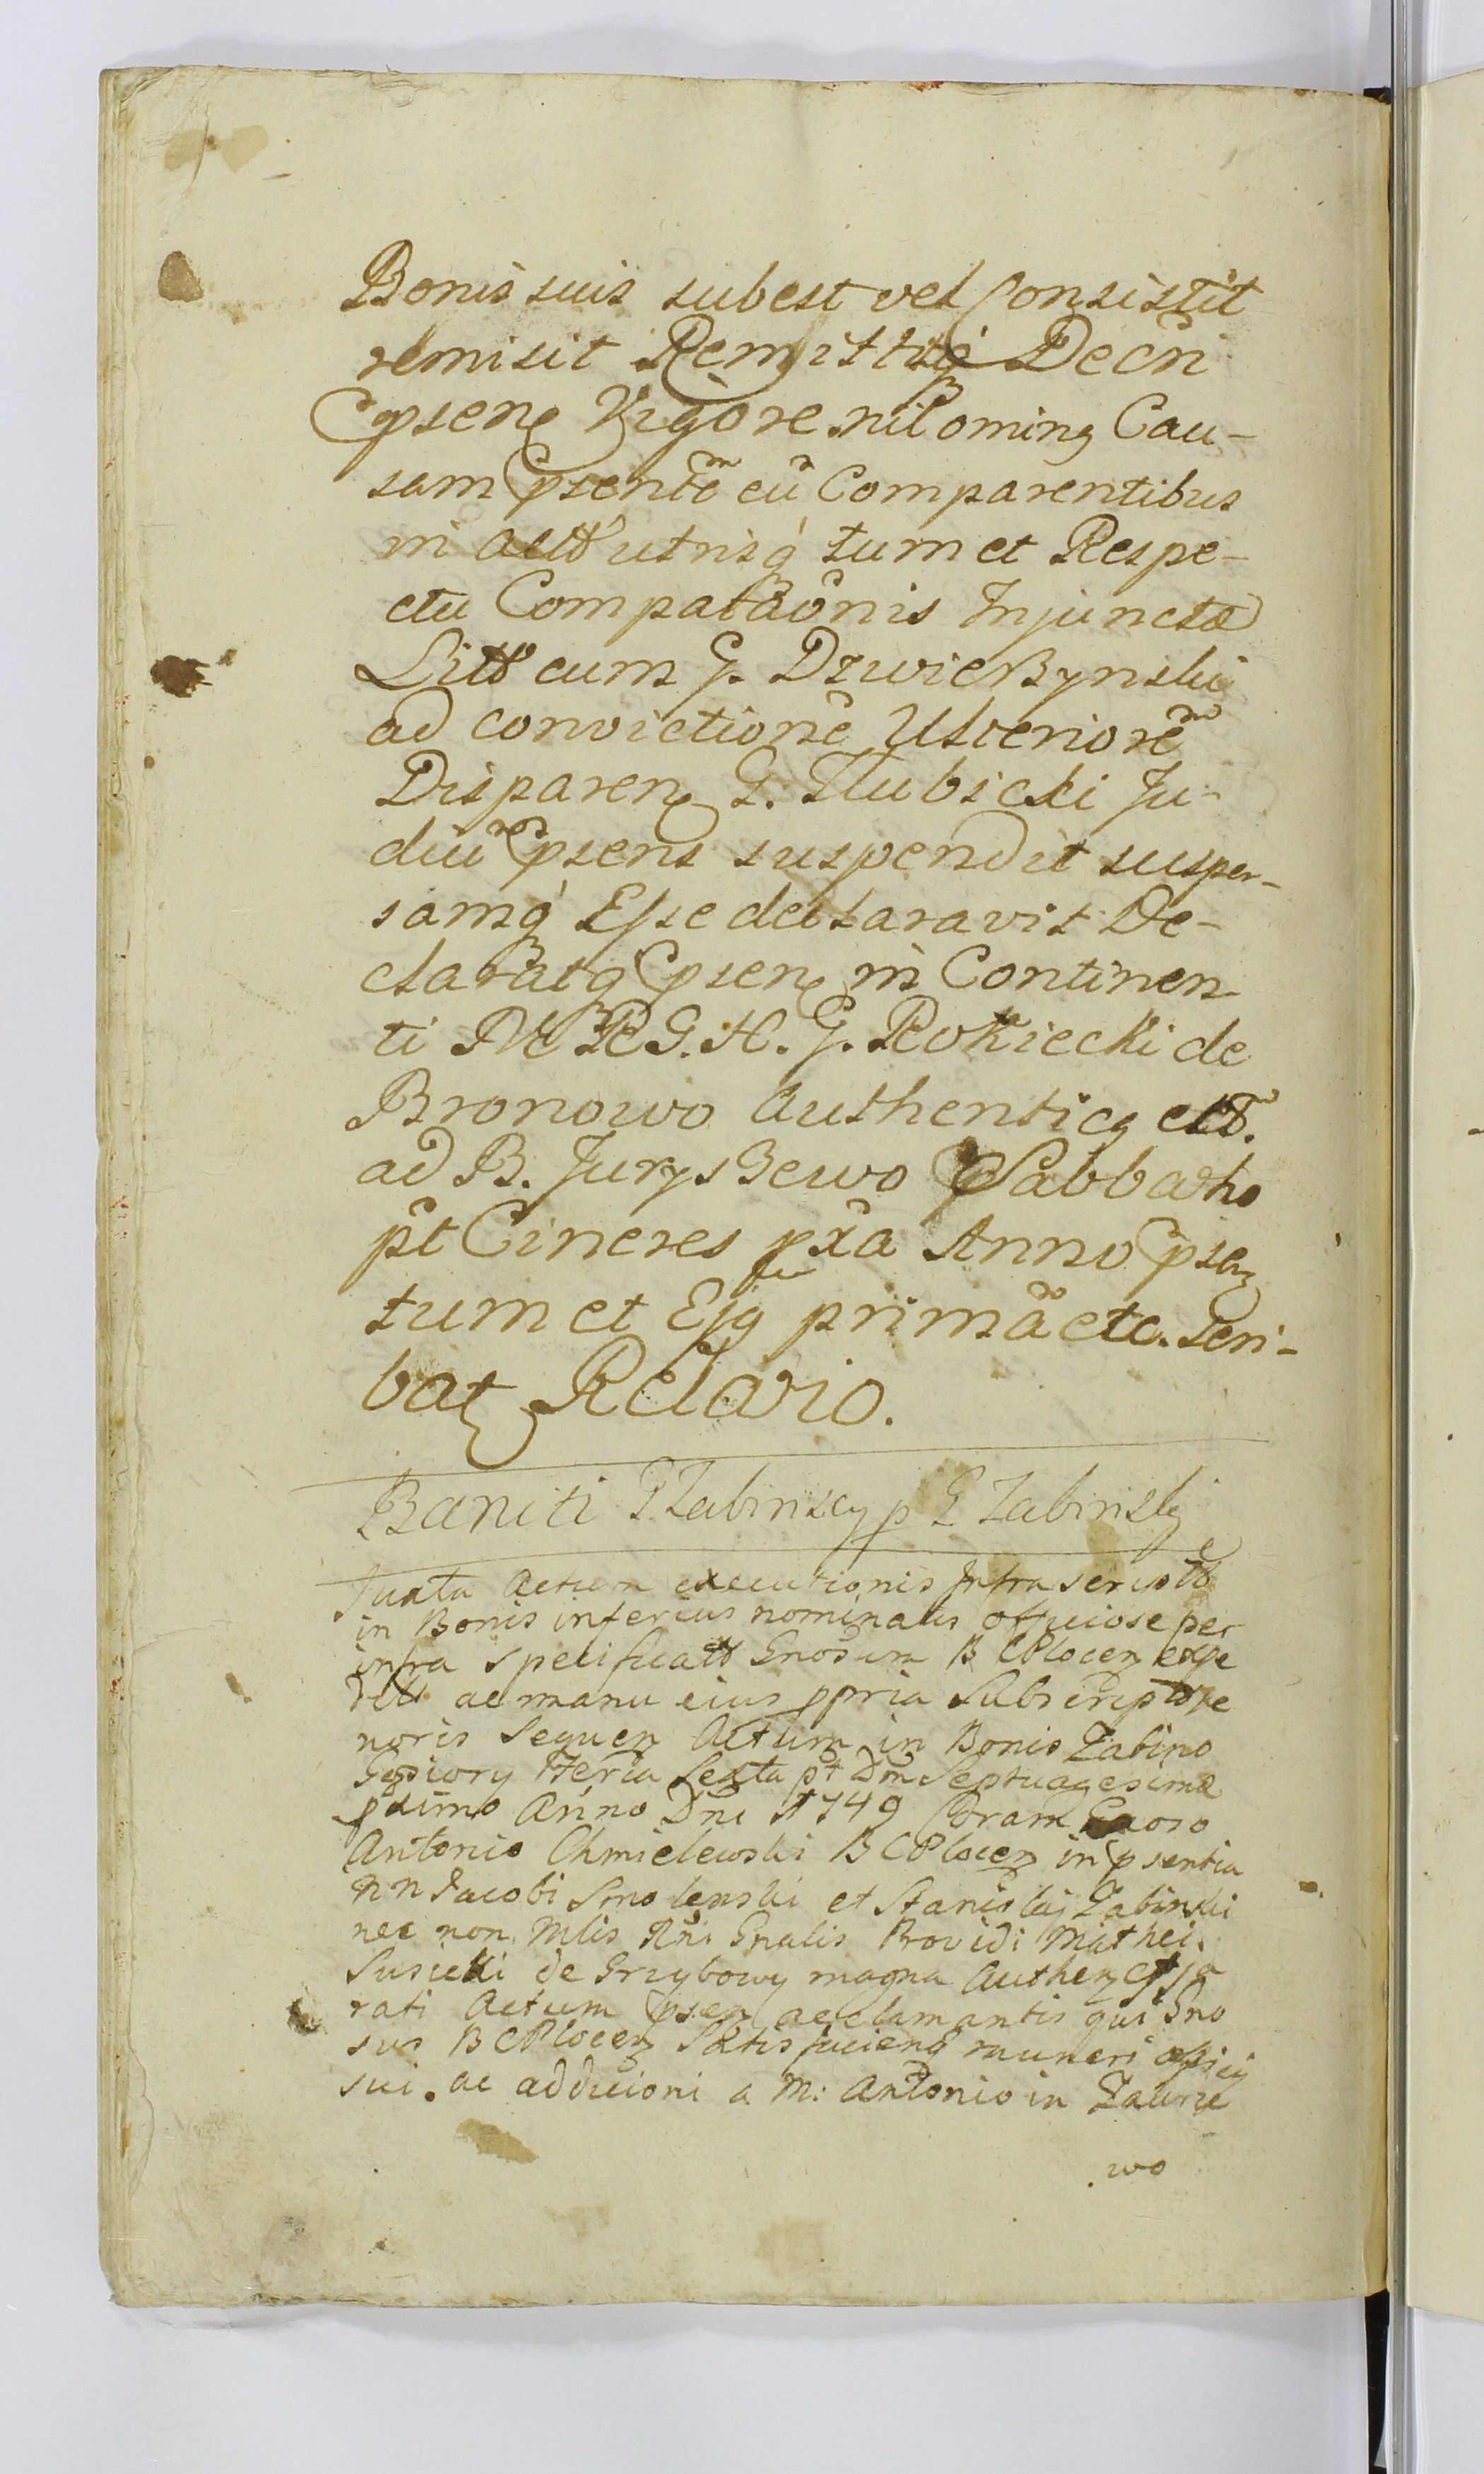 Bonis suis subest vel Consistit
remisit Remittitq́ Decri
psen Vigore nilominq Cau-
sam psentē cū Comparentibus
in actt utrisq́ tum et Respe-
ctu Comparaonis Injunctæ
Litt cum G. Dzwierzynski
ad convictionē Ulteriorē
Disparen G. Słubicki Ju-
diū psens suspendit suspen-
samq́ Esse declaravit De-
claratq psen in Continen-
ti G. Rokiecki de
Bronowo Authenticq ett.
ad B. Juryszewo Sabbatho
pt Cineres pxa Anno psen
tum et Ejq primā etc. scri-
bat Relatio.
Baniti Zabinscy p G Zabinski
Juxta Actum executionis Infrascriptt
in Bonis inferius nominatis officiose per
infra specificatt Gnosum B C Plocen expe
ditt ac manu eius ppria Subscriptt te
noris Sequen Actum in Bonis Zabino
Gąsiory Feria Sexta pt Dm Septuagesima
pximo Anno Dni 1749 Coram Gnoso
Antonio Chmielewski B C Plocen in psentia
NN Jacobi Smolenski et Stanislai Zabinski
nec non Mlis Rni Gnalis Providi Mathei
Susicki de Grzybowy magna Authen et ju
rati Actum psen acclamantis qui Gno
sus B C Plocen Satisfaciend muneri officij
sui. ac adducioni a M: Antonio in Zaurze
wo